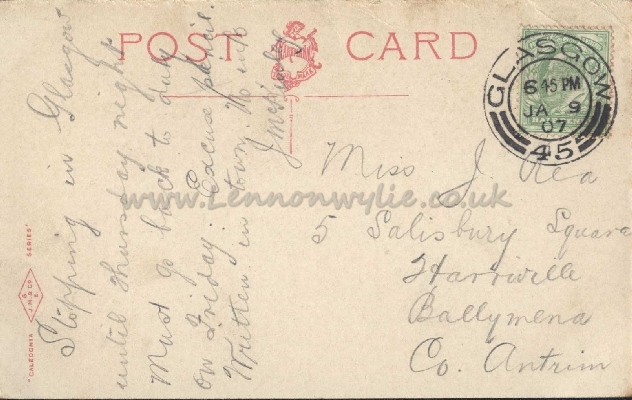 POST CARD
GLASGOW
6 45 PM
JA 9
07
45
Miss J. Rea
5 Salisbury Square
Harrville
Ballymena
Co. Antrim
Stopping in Glasgow
until Thursday night
Must go back to duty
on Friday. Excuse pencil.
Written in town. 
www.Lennonwylie.co.uk
"CALEDONIA SERIES"
J.M. & CO